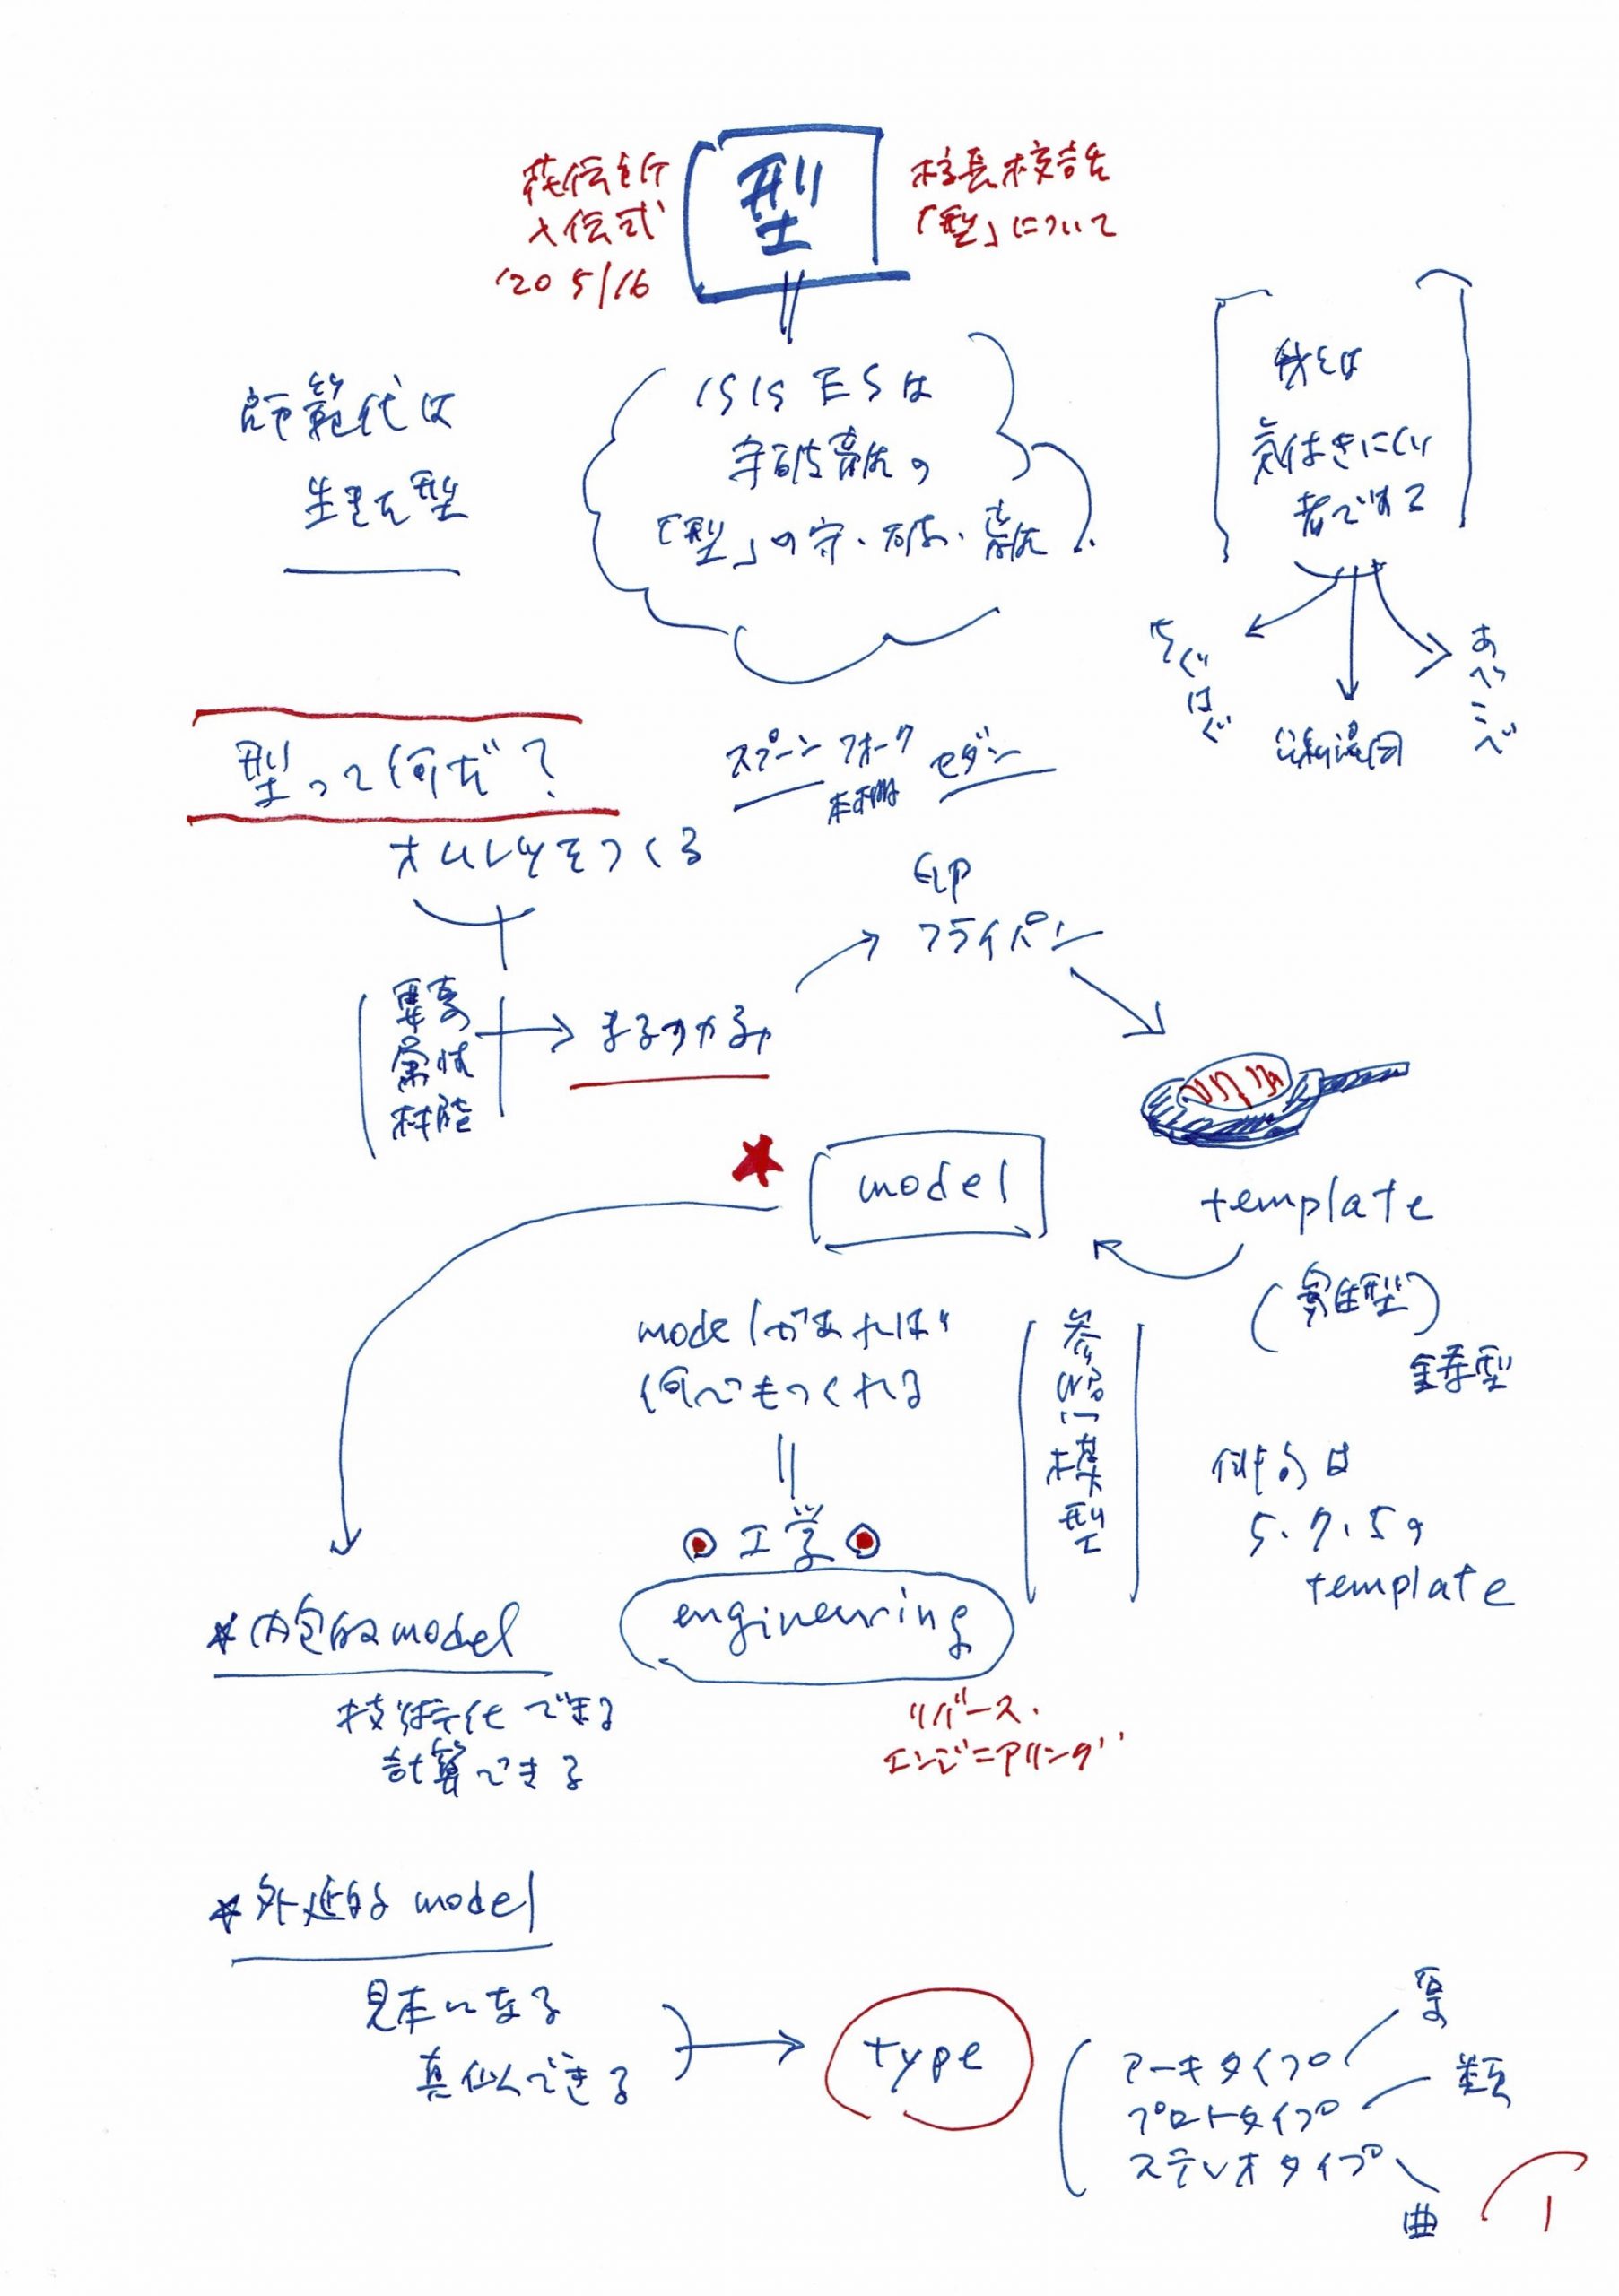 花伝敢行
入伝式
'20 5/16
型
校長校話
「型」について
師範代は
生きた型
ISIS ESは
守破離の
「型」の守・破・離
我々は
気付きにくい
者である
ちぐはぐ
あべこべ
型って何だ?
スプーン フォーク セダン
本棚
オムレツをつくる
フライパン
要素
属性
機能
まるずかみ
model
template
(寄生型)
鋳型
modelがあれば
何でもつくれる
工学
engineering
リバース・
エンジニアリング
模型
俳句は
5.7.5の
template
*内包的model
技術化できる
計算できる
*外延的model
見本になる
真似できる
type
アーキタイプ
プロトタイプ 類
ステレオタイプ
典
1